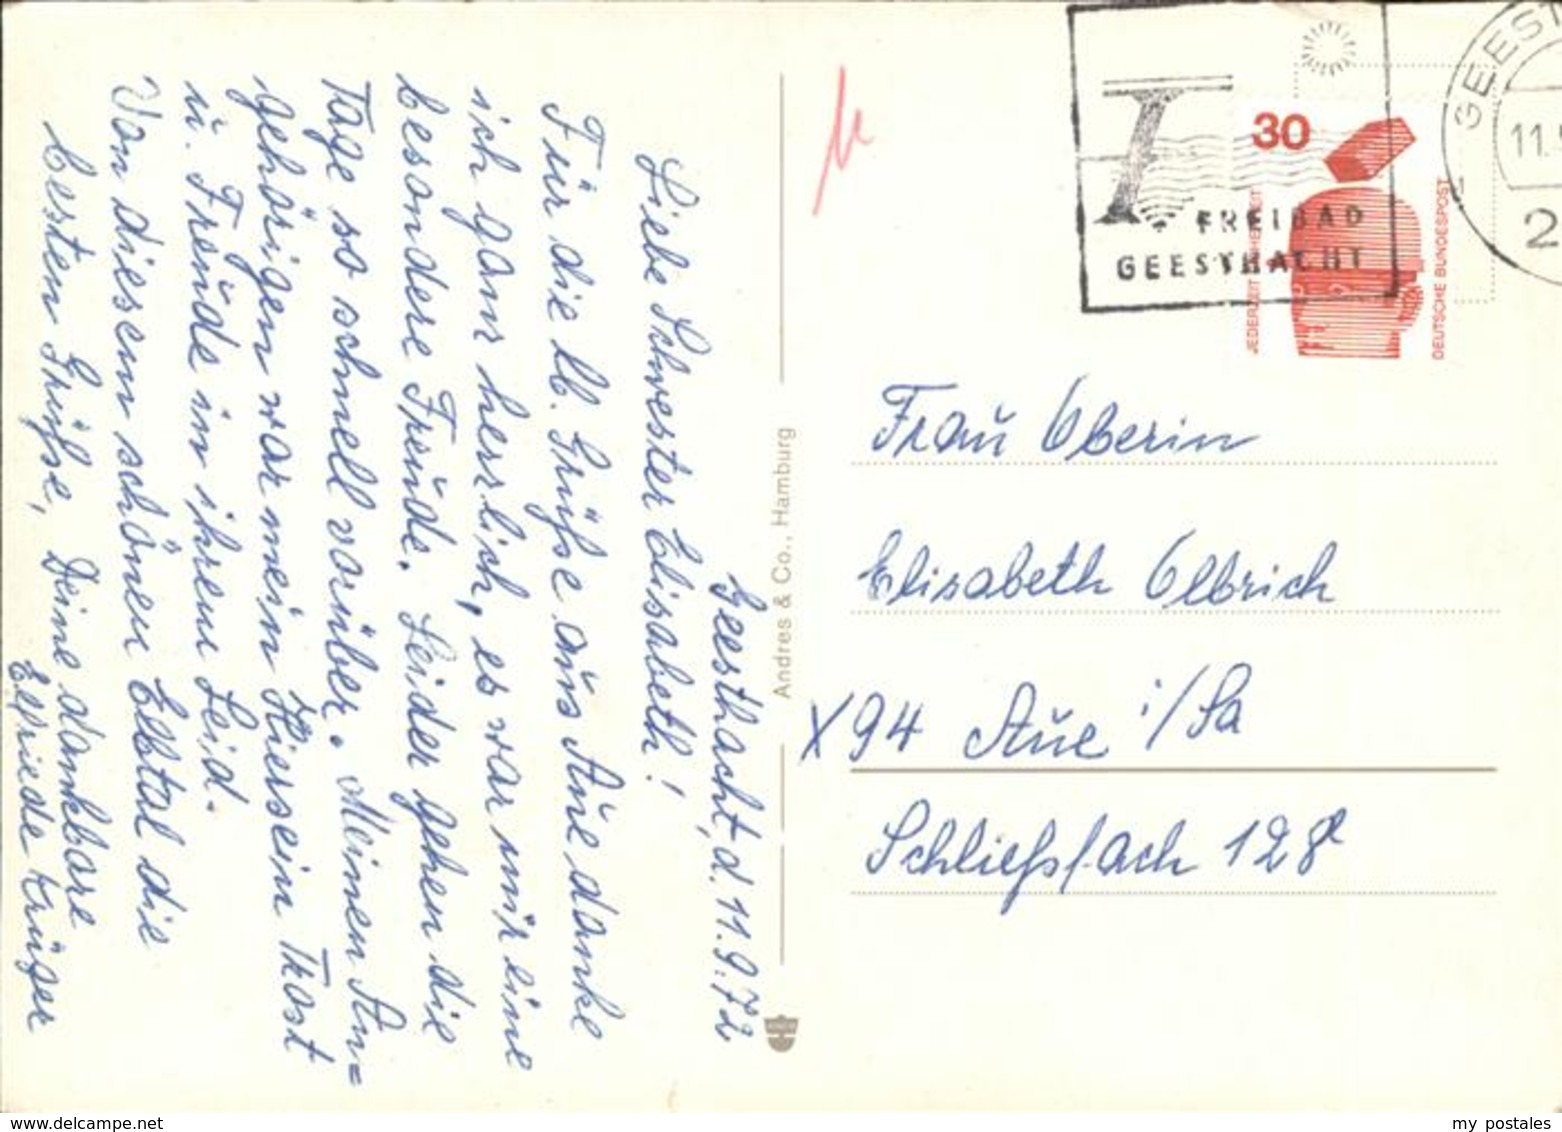 Geesthacht, d. 11.9.72
Liebe Schwester Elisabeth!
Für die lb. Grüße aus Aue danke
ich ganz herzlich, es war mir eine
besondere Freude. Leider gehen die
Tage so schnell vorüber. Meinen An=
gehörigen war mein Hiersein Trost
u. Freude in ihrem Leid.
Von diesem schönen Elbtal die
besten Grüße, Deine dankbare
Elfriede Krüger
Andres & Co., Hamburg
FREIBAD
GEESTHACHT
30
JEDERZEIT
DEUTSCHE BUNDESPOST
GEEST
11.
2
Frau Oberin
Elisabeth Olbrich
X94 Aue i/Sa
Schließfach 128
www.delcampe.net
my_postales